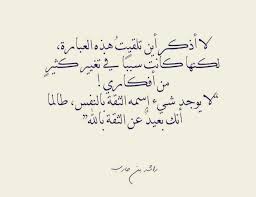 لا أذكر أين تلقيتُ هذه العبارة،
لكنها كانت سببًا في تغير كثيرٍ
من أفكاري !
"لا يوجد شيء إسمه الثقة بالنفس، طالما
أنك بعيدٌ عن الثقة بالله"